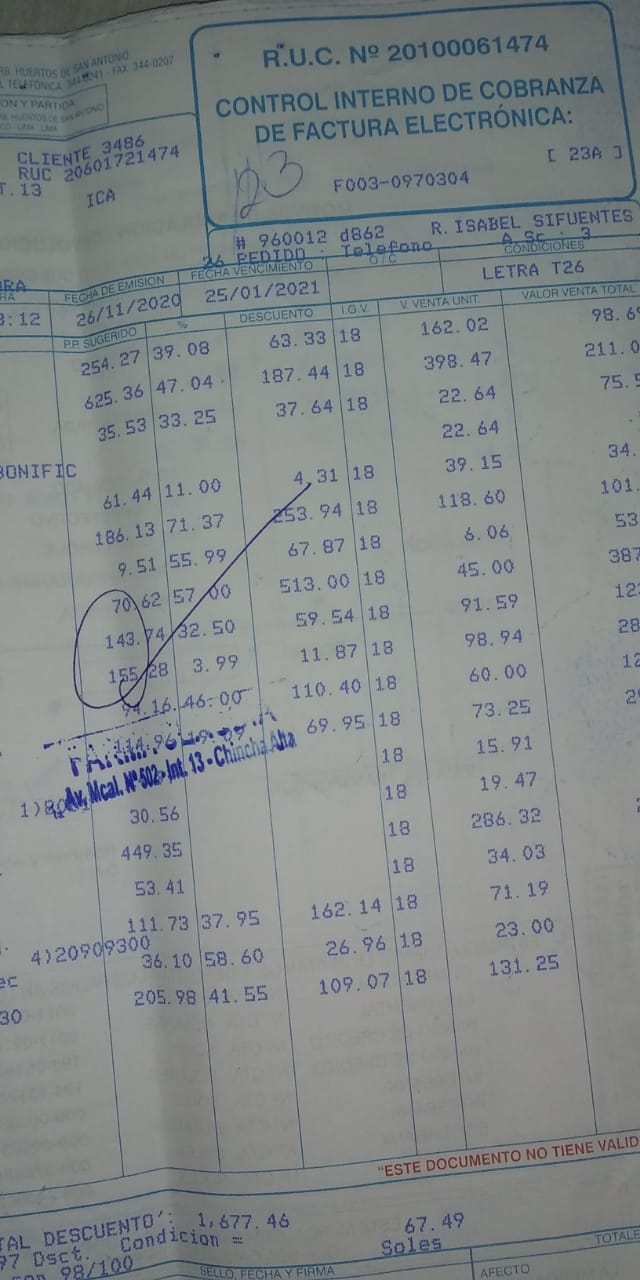 RB. HUERTOS DE SAN ANTONIO
FAX 344-0207
ON Y PARTIDA
R.U.C. Nº 20100061474
CONTROL INTERNO DE COBRANZA
DE FACTURA ELECTRÓNICA:
[ 23A ]
F003-0970304
CLIENTE 3486
RUC 20601721474
T.13
ICA
23
# 960012 d862 R. ISABEL SIFUENTES
26 PEDIDO : Telefono A Sc : 3
FECHA DE EMISION FECHA VENCIMIENTO O / C CONDICIONES
3:12 26/11/2020 25/01/2021 LETRA T26
P.P. SUGERIDO % DESCUENTO I.G.V. V. VENTA UNIT. VALOR VENTA TOTAL
254.27 39.08 63.33 18 162.02 98.6
625.36 47.04 187.44 18 398.47 211.0
35.53 33.25 37.64 18 22.64 75.5
22.64
BONIFIC
61.44 11.00 4.31 18 39.15 34.
186.13 71.37 253.94 18 118.60 101.
9.51 55.99 67.87 18 6.06 53
70.62 57.00 513.00 18 45.00 387
143.74 32.50 59.54 18 91.59 12
155.28 3.99 11.87 18 98.94 28
94.16 46.00 110.40 18 60.00 12
69.95 18 73.25
Av. Mcal. Nº 502 - Int. 13 - Chincha Alta
18 15.91
30.56 18 19.47
449.35 18 286.32
53.41 18 34.03
111.73 37.95 162.14 18 71.19
4)20909300
36.10 58.60 26.96 18 23.00
ec
205.98 41.55 109.07 18 131.25
30
"ESTE DOCUMENTO NO TIENE VALID
TAL DESCUENTO : 1,677.46
97 Dsct. Condicion = 67.49
98/100 Soles
SELLO, FECHA Y FIRMA AFECTO TOTALE